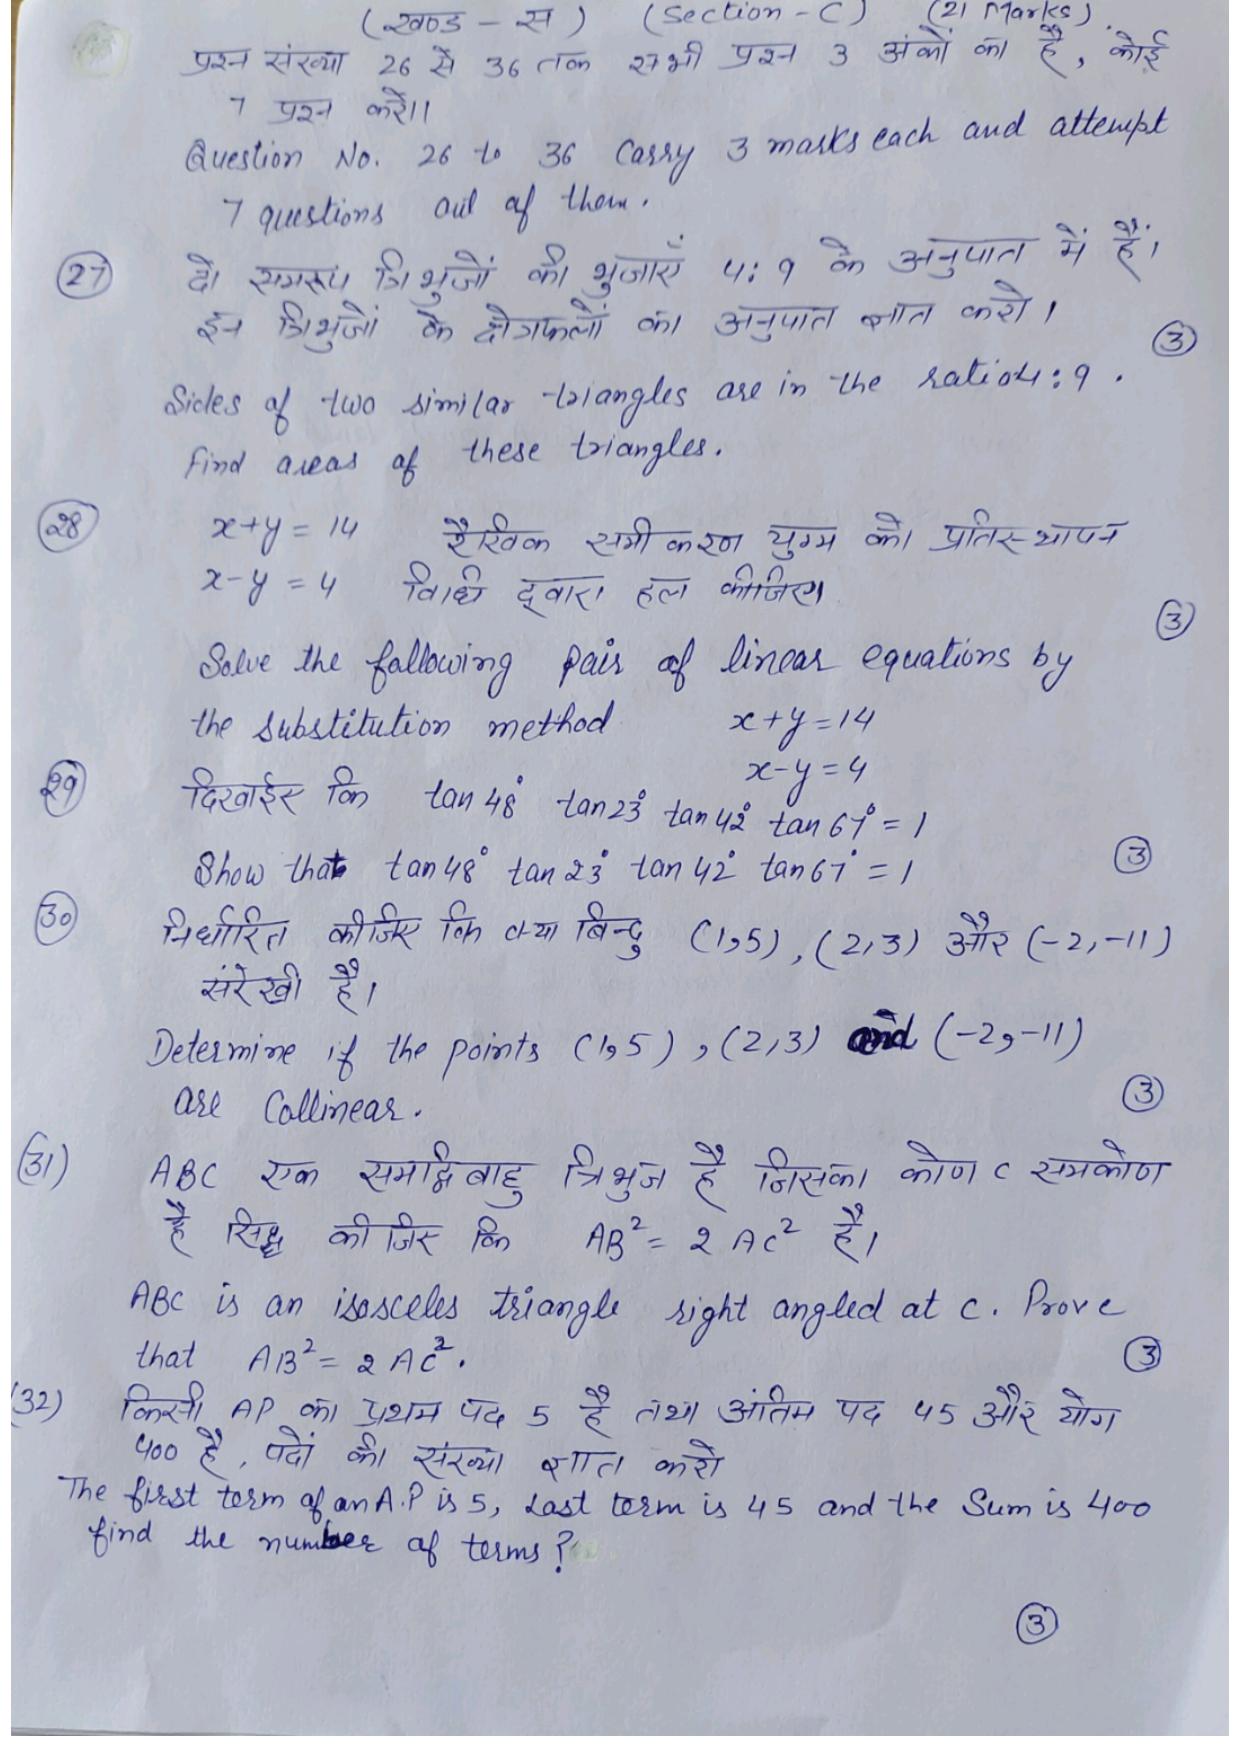 (खण्ड - स) (Section - C) (21 Marks)
प्रश्न संख्या 26 से 36 तक सभी प्रश्न 3 अंकों का है, कोई
7 प्रश्न करें।।
Question No. 26 to 36 Carry 3 marks each and attempt
7 questions out of them.
(27) दो समरूप त्रिभुजों की भुजाएँ 4:9 के अनुपात में हैं।
इन त्रिभुजों के क्षेत्रफलों का अनुपात ज्ञात करो।
(3)
Sides of two similar triangles are in the ratio 4:9.
Find areas of these triangles.
(28) x+y = 14 रैखिक समीकरण युग्म को प्रतिस्थापन
x-y = 4 विधि द्वारा हल कीजिए।
(3)
Solve the following pair of linear equations by
the substitution method x+y=14
x-y=4
(29) दिखाईए कि tan 48° tan 23° tan 42° tan 67° = 1
Show that tan 48° tan 23° tan 42° tan 67° = 1 (3)
(30) निर्धारित कीजिए कि क्या बिन्दु (1,5), (2,3) और (-2,-11)
संरेखी है।
Determine if the points (1,5), (2,3) and (-2,-11)
are Collinear. (3)
(31) ABC एक समद्विबाहु त्रिभुज है जिसका कोण C समकोण
है सिद्ध कीजिए कि AB² = 2 AC² है।
ABC is an isosceles triangle right angled at C. Prove
that AB² = 2 AC². (3)
(32) किसी AP का प्रथम पद 5 है तथा अंतिम पद 45 और योग
400 है, पदों की संख्या ज्ञात करो
The first term of an A.P is 5, Last term is 45 and the Sum is 400
find the number of terms?
(3)